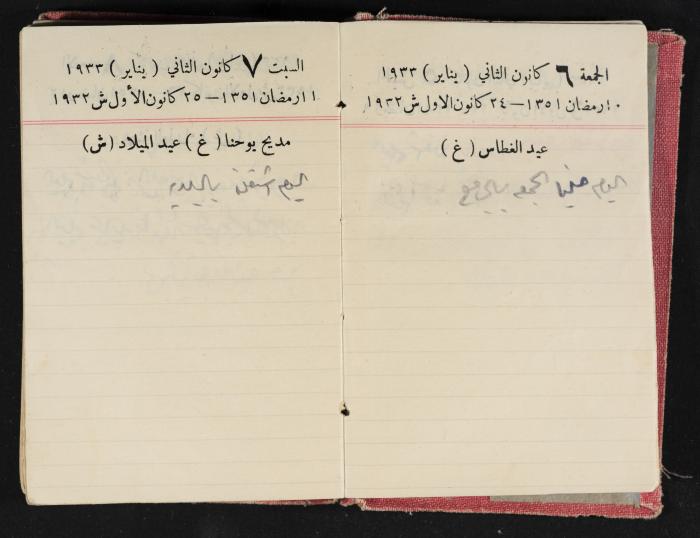 الجمعة ٦ كانون الثاني ( يناير ) ١٩٣٣
١٠ رمضان ١٣٥١ — ٢٤ كانون الاول ش ١٩٣٢
عيد الغطاس ( غ )
اليوم صلينا الجمعه بالجامع
السبت ٧ كانون الثاني ( يناير ) ١٩٣٣
١١ رمضان ١٣٥١ — ٢٥ كانون الأول ش ١٩٣٢
مديح يوحنا ( غ ) عيد الميلاد ( ش )
اليوم اشتغلت بالبلديه